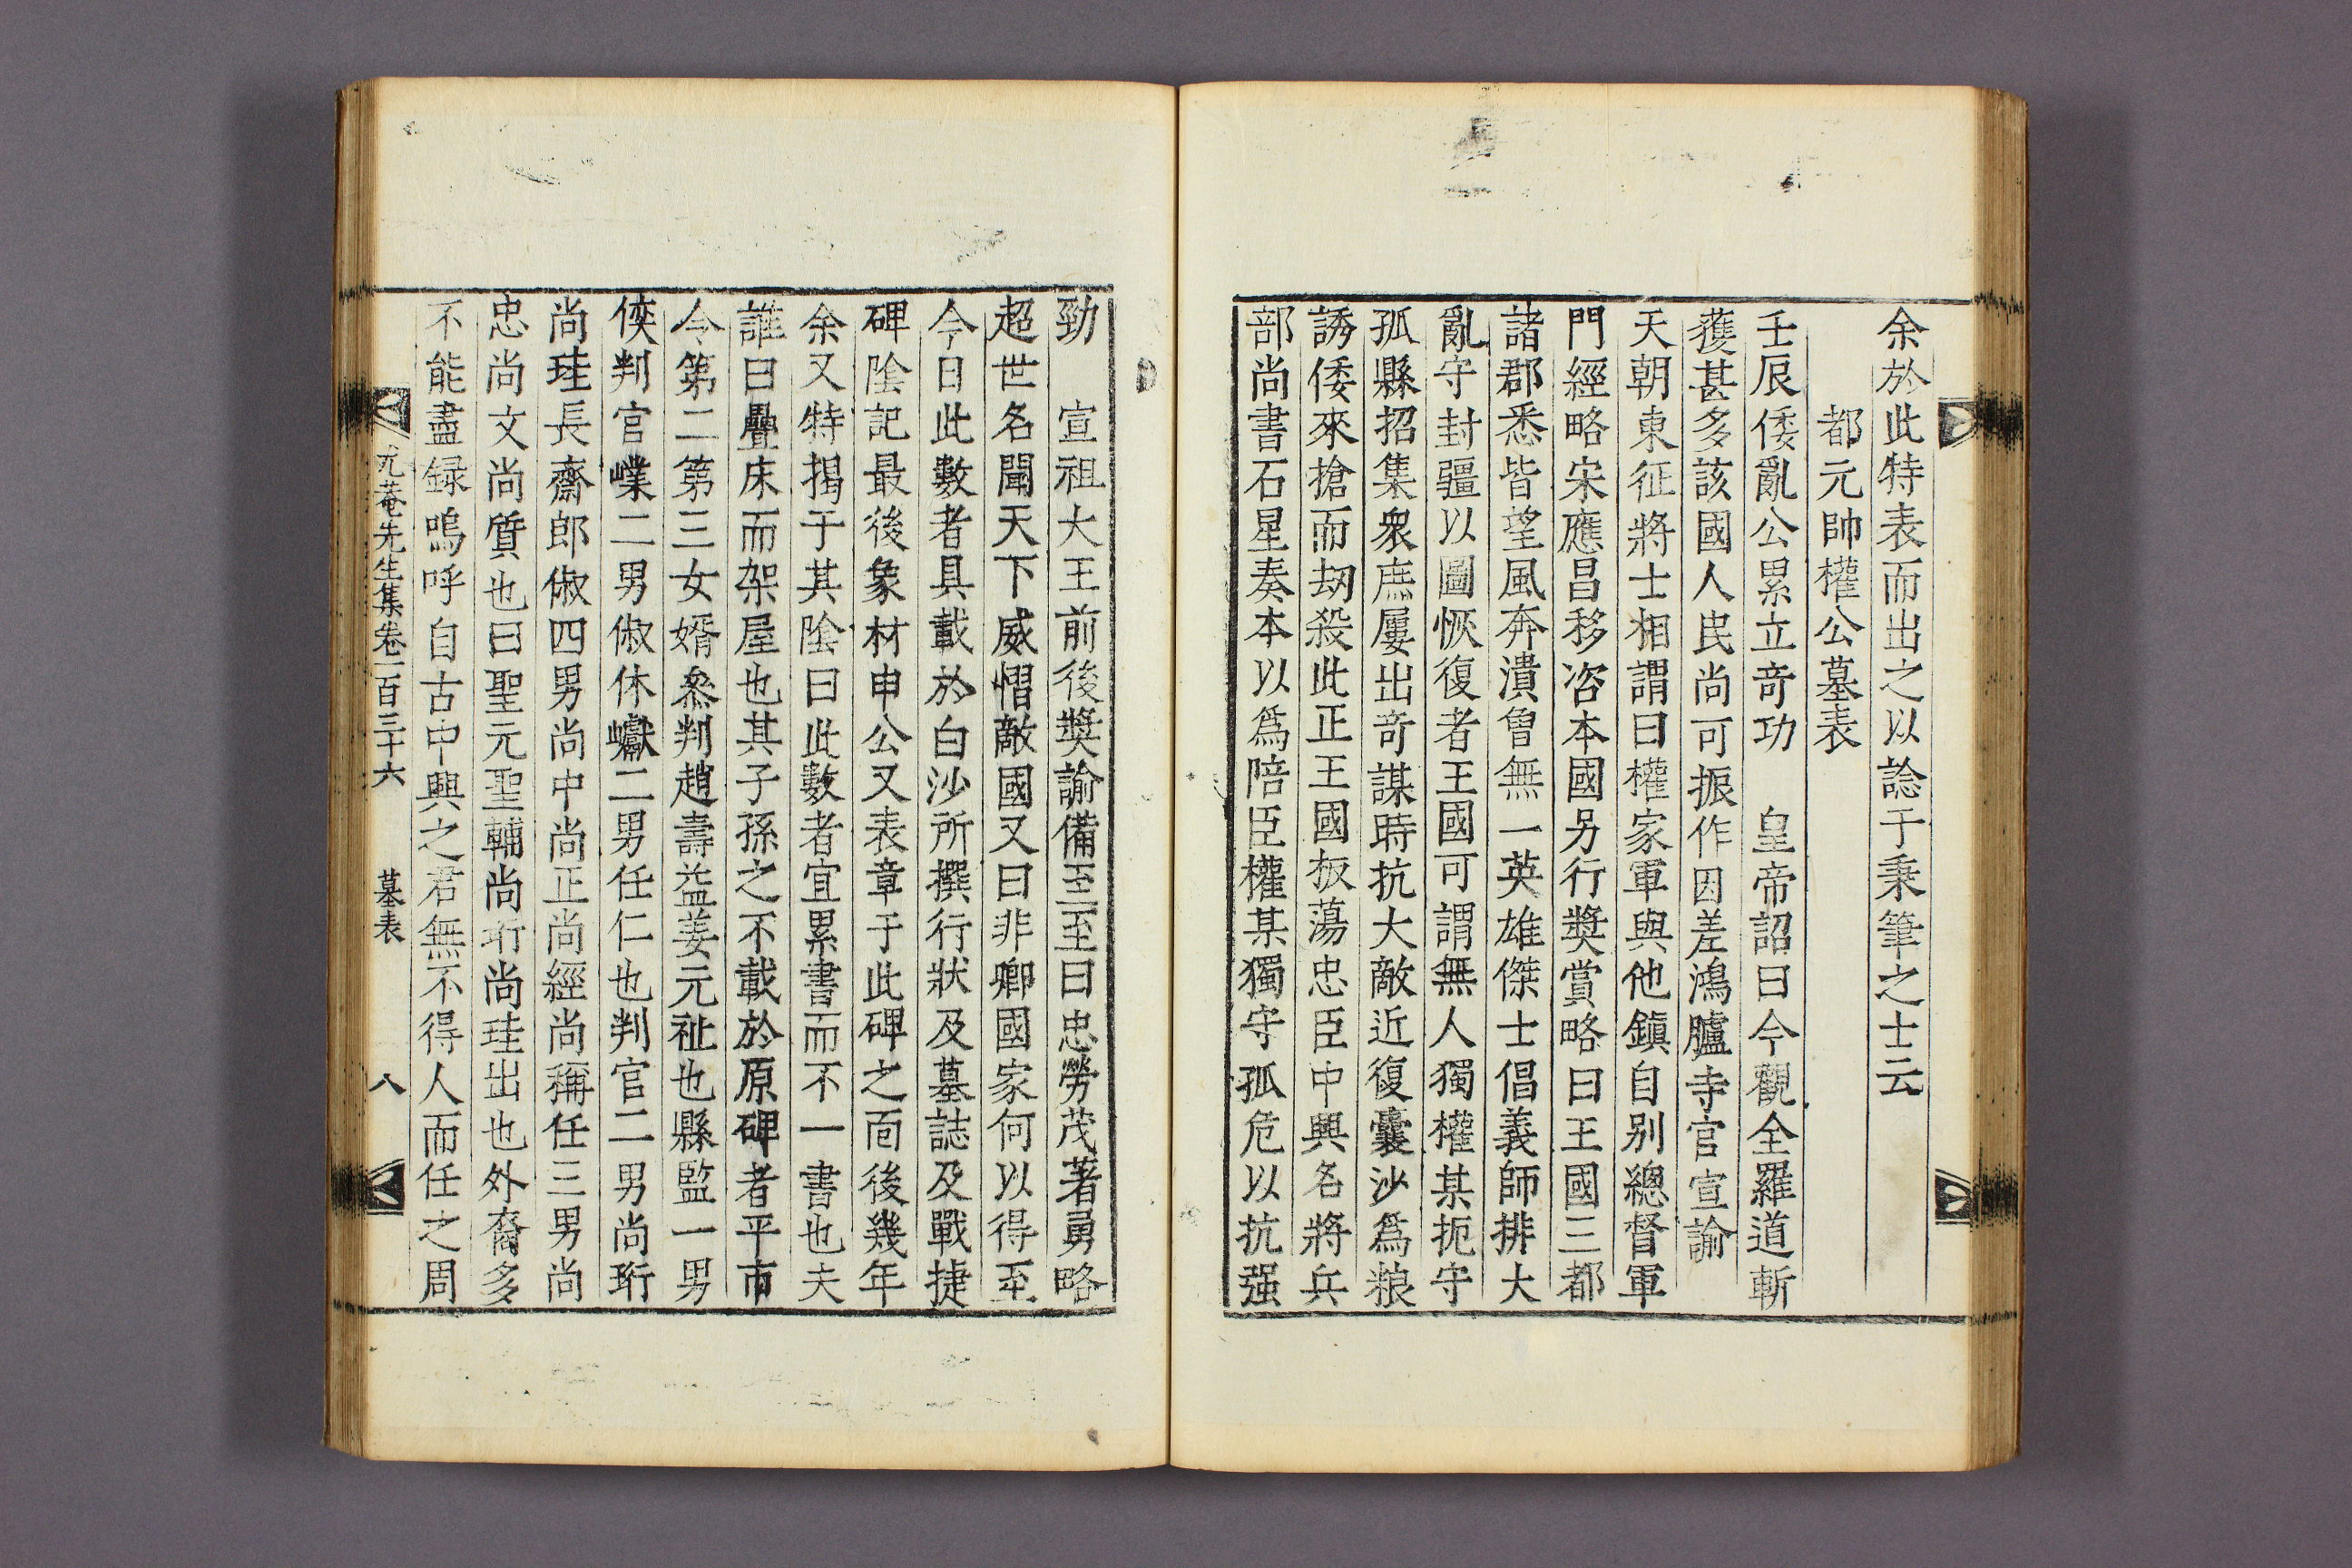 余於此特表而出之以諗于秉筆之士云
都元帥權公墓表
壬辰倭亂公累立奇功　皇帝詔曰今觀全羅道斬
獲甚多該國人民尚可振作因差鴻臚寺官宣諭
天朝東征將士相謂曰權家軍與他鎭自別總督軍
門經略宋應昌移咨本國另行獎賞略曰王國三都
諸郡悉皆望風奔潰曾無一英雄傑士倡義師排大
亂守封疆以圖恢復者王國可謂無人獨權某扼守
孤縣招集衆庶屢出奇謀時抗大敵近復囊沙爲粮
誘倭來搶而刼殺此正王國板蕩忠臣中興名將兵
部尚書石星奏本以爲陪臣權某獨守孤危以抗强
勁　宣祖大王前後獎諭備至至曰忠勞茂著勇略
超世名聞天下威慴敵國又曰非卿國家何以得至
今日此數者具載於白沙所撰行狀及墓誌及戰捷
碑陰記最後象材申公又表章于此碑之面後幾年
余又特揭于其陰曰此數者宜累書而不一書也夫
誰曰疊床而架屋也其子孫之不載於原碑者平市
令第二第三女婿叅判趙壽益姜元祉也縣監一男
侙判官嶫二男俶休巘二男任仁也判官二男尚珩
尚珪長齋郎俶四男尚中尚正尚經尚稱任三男尚
忠尚文尚質也曰聖元聖輔尚珩尚珪出也外裔多
不能盡録嗚呼自古中興之君無不得人而任之周
元菴先生集卷一百三十六　墓表　八